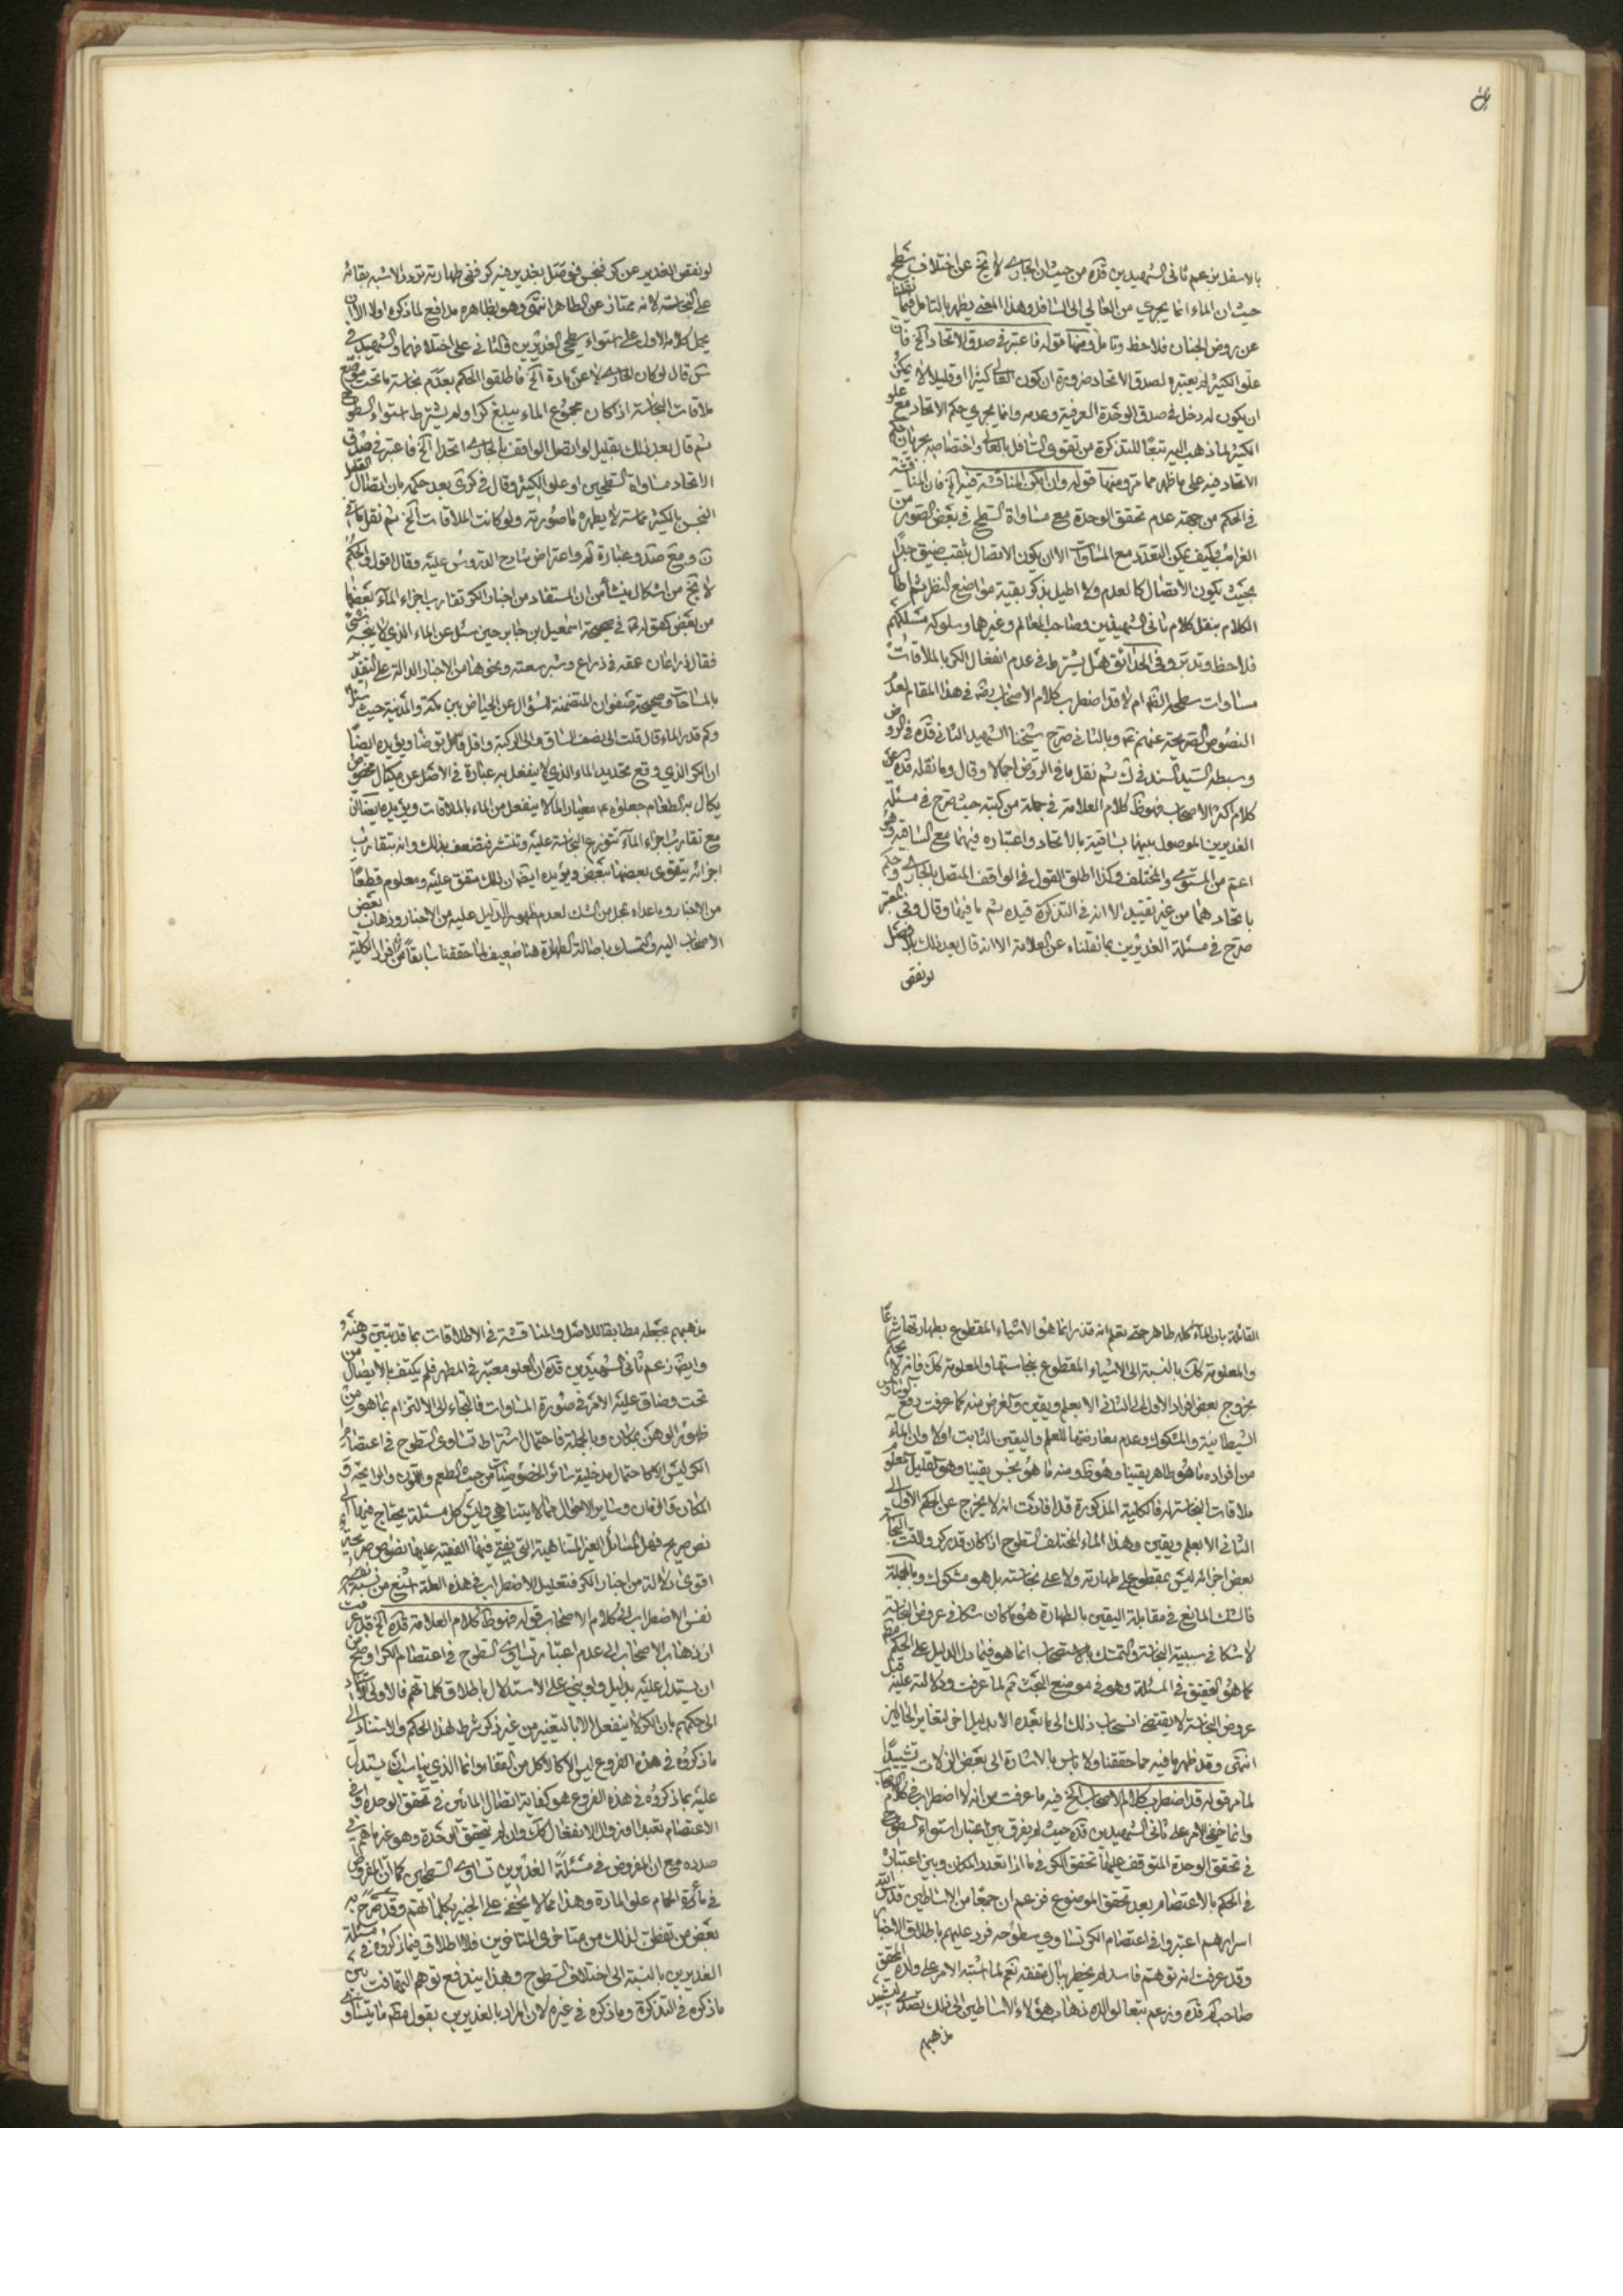 بالاسفل بزعم ثانى الشهيدين قده من حيث ان الجارى لا يخ عن اختلاف سطح
حيث ان الماء انما يجرى من العالي الى السافل وهذا المعنى يظهر بالتامل فيما نقلنا
عن روض الجنان فلاحظ وتامل ومنها قوله فاعتبر فى صدق الاتحاد الخ فان
علو الكثير لم يعتبره لصدق الاتحاد ضرورة ان كون العالى كثيرا او قليلا لا يمكن
ان يكون له دخل فى صدق الوحدة العرفية وعدمه وانما يجرى حكم الاتحاد مع علو
الكثير لما ذهب اليه تبعًا للتذكرة من تقوى السافل بالعالى واختصاصه بجريان حكم
الاتحاد فيه على ما ظهر مما مر ومنها قوله وان امكن المناقشة فيه الخ فان المناقشة
فى الحكم من جهة عدم تحقق الوحدة مع مساواة السطح فى بعض الصور من
الغرائب وكيف يمكن التعدد مع المساوات الا ان يكون الاتصال بثقب ضيق جدًا
بحيث يكون الاتصال كالعدم ولا اطيل بذكر بقية مواضع النظر ثم اطال
الكلام بنقل كلام ثانى الشهيدين وصاحب المعالم وغيرهما وسلوكه مسلكهم
فلاحظ وتدبر وفى الحدائق هل يشترط فى عدم انفعال الكر بالملاقات
مساوات سطحه الفقها ام لا قد اضطرب كلام الاصحاب رضه فى هذا المقام لعدم
النصوص الصريحة عنهم عم وبالثانى صرح شيخنا الشهيد الثانى قده فى الروض
وسبطه السيد السند فى ك ثم نقل ما فى الروض اجمالا وقال وما نقله قده عن
كلام اكثر الاصحاب فهو ظ كلام العلامة فى جملة من كتبه حيث صرح فى مسئلة
الغديرين الموصول بينهما بساقية بالاتحاد واعتباره فيهما مع الساقية وهو
اعم من المستوى والمختلف وكذا اطلق القول فى الواقف المتصل بالجارى وحكم
باتحادهما من غير تقييد الا انه فى التذكرة قيده ثم ما فيها وقال وفى المعتبر
صرح فى مسئلة الغديرين بما نقلناه عن العلامة الا انه قال بعد ذلك بلا فصل
لو نقص
لو نقص الغدير عن كر فنجس فوصل بغدير فيه كر ففى طهارته تردد والاشبه بقائه
على النجاسة لانه ممتاز عن الطاهر انتهى وهو بظاهره مدافع لما ذكره اولا الا ان
يحمل كلامه الاول على استواء سطحى الغديرين والثانى على اختلافهما والشهيد فى
س قال لو كان الجارى لا عن مادة الخ فاطلقوا الحكم بعدم نجاسة ما تحت موضع
ملاقات النجاسة اذا كان مجموع الماء يبلغ كرا ولم يشترط استواء السطوح
ثم قال بعد ذلك بقليل لو اتصل الواقف بالجارى اتحدا الخ فاعتبر فى صدق
الاتحاد مساواة السطحين او علو الكثير وقال فى كرى بعد حكمه بان اتصال القليل
النجس بالكثير مماسة لا يطهره ما صورته ولو كانت الملاقات الخ ثم نقل ما فى
ن و مع صد وعبارة لم واعتراض شارح الدروس عليه وقال اقول والحكم
لا يخ من اشكال ينشأ من ان المستفاد من اخبار الكر تقارب اجزاء الماء بعضها
من بعض كقوله ع فى صحيحة اسمعيل بن جابر حين سئل عن الماء الذي لا ينجسه شئ
فقال ذراعان عمقه فى ذراع وشبر سعته ونحوها من الاخبار الدالة على التقدير
بالمساحات وصحيحة صفوان المتضمنة السؤال عن الحياض بين مكة والمدينة حيث سئل
وكم قدر الماء قال قلت الى نصف الساق والى الركبة واقل قال توضأ ويؤيده ايضًا
ان الكر الذى وقع تحديد الماء الذى لا ينفعل به عبارة فى الاصل عن مكيال مخصوص
يكال به الطعام جعلوه ع معيارا لما لا ينفعل من الماء بالملاقات ويؤيده ايضا ان
مع تقارب اجزاء الماء تتوزع النجاسة عليه وتنتشر فتضعف بذلك وانه بتقارب
اجزائه يتقوى بعضها ببعض ويؤيده ايضه ان ذلك متفق عليه ومعلوم قطعًا
من الاخبار وما عداه محل من الشك لعدم ظهور الدليل عليه من الاخبار وذهاب بعض
الاصحاب اليه والتمسك باصالة الطهارة هنا ضعيف لما حققنا سابقًا من افراد الكلية
القائلة بان الماء كله طاهر حتى تعلم انه قذر انما هو الاشياء المقطوع بطهارتها شرعا
والمعلومة كك بالنسبة الى الاشياء المقطوع بنجاستها والمعلومة كك فانه لا يحكم
بخروج بعض افراد الاول الى الثانى الا بعلم ويقين والغرض منه كما عرفت دفع الوساوس
الشيطانية والشكوك وعدم معارضتها للعلم واليقين الثابت اولا وان الماء
من افراده ما هو طاهر يقينا وهو ظ ومنه ما هو نجس يقينا وهو القليل المعلوم
ملاقات النجاسة له فالكلية المذكورة قد افادت انه لا يخرج عن الحكم الاول الى
الثانى الا بعلم ويقين وهذا الماء المختلف السطوح اذا كان قدر كر ولاقت النجاسة
بعض اجزائه ليس بمقطوع على طهارته ولا على نجاسته بل هو مشكوك وبالجملة
فالشك المانع فى مقابلة اليقين بالطهارة هو ما كان شكا فى عروض النجاسة
لا شكا فى سببية النجاسة والتمسك بالاستصحاب انما هو فيما دل الدليل على الحكم مط
كما هو التحقيق فى المسئلة وهو فى موضع البحث ثم لما عرفت ودلالته عليه قبل
عروض النجاسة لا يقتضى انسحاب ذلك الى ما بعده الا بدليل اخر لتغاير الحالين
انتهى وقد ظهر ما فيه مما حققنا ولا باس بالاشارة الى بعض الزلات تشييدًا
لما مر قوله قد اضطرب كلام الاصحاب الخ فيه ما عرفت من انه لا اضطراب فى كلام الاصحاب
وانما خفى الامر على ثانى الشهيدين قده حيث لم يفرق بين اعتبار استواء السطوح
فى تحقق الوحدة المتوقف عليها تحقق الكر فى ما اذا تعدد المكان وبين اعتباره
فى الحكم بالاعتصام بعد تحقق الموضوع فزعم ان جمعًا من الاساطين قدس الله
اسرارهم اعتبروا فى اعتصام الكر تساوي سطوحه فرد عليهم باطلاق الاخبار
وقد عرفت انه توهم فاسد لم يخطر ببال متفقه نعم لما اشتبه الامر على ولده المحقق
صاحب لم قده وزعم تبعا لوالده ذهاب هؤلاء الاساطين الى ذلك تصدى لتشييد
مذهبهم
مذهبهم بجعله مطابقا للاصل والمناقشة فى الاطلاقات بما قد تبين وهنه
وايضه زعم ثانى الشهيدين قده ان العلو معتبر فى المطهر فلم يكتف بالايصال من
تحت وضاق عليه الامر فى صورة المساوات فالتجاء الى الالتزام بما هو من
ظهور الوهن بمكان وبالجملة فاحتمال اشتراط تساوى السطوح فى اعتصام
الكر ليس الا كاحتمال مدخلية سائر الخصوصيات من حيث الطعم واللون والرايحة و
المكان والزمان وساير الاحوال مما لا يتناهى وليس كل مسئلة يحتاج فيها الى
نص صريح فهل المسائل الغير المتناهية التى يفتى فيها الفقيه عليها نصوص صريحة
اقوى دلالة من اخبار الكر فتعليل الاضطراب فى هذه العلة اشنع من نسبة
نفس الاضطراب الى كلام الاصحاب قوله فهو ظ كلام العلامة قده الخ قد عرفت
ان ذهاب الاصحاب الى عدم اعتبار تساوى السطوح فى اعتصام الكر اوضح من
ان يستدل عليه بدليل ولو بنى على الاستدلال باطلاق كلماتهم فالاولى الاستناد
الى حكمهم بان الكر لا ينفعل الا بالتغير من غير ذكر شرط لهذا الحكم والاستناد الى
ما ذكروه فى هذه الفروع ليس الا كالاكل من القفاء وانما الذى يناسب ان يستدل
عليه بما ذكروه فى هذه الفروع هو كفاية اتصال المائين فى تحقق الوحدة او فى
الاعتصام تعبدا وزوال الانفعال كك وان لم تتحقق الوحدة وهو غير ما هم فى
صدده مع ان المفروض فى مسئلة الغديرين تساوى السطحين كما ان المفروض
فى ماء الحمام علو المادة وهذا مما لا يخفى على الخبير بكلماتهم وقد صرح به
بعض من تفطن لذلك من متاخرى المتاخرين فلا اطلاق فيما ذكروه فى مسئلة
الغديرين بالنسبة الى اختلاف السطوح وهذا يندفع توهم التهافت بين
ما ذكره فى التذكرة وما ذكره فى غيره لان المراد بالغديرين بقول مطم ما يتساوى